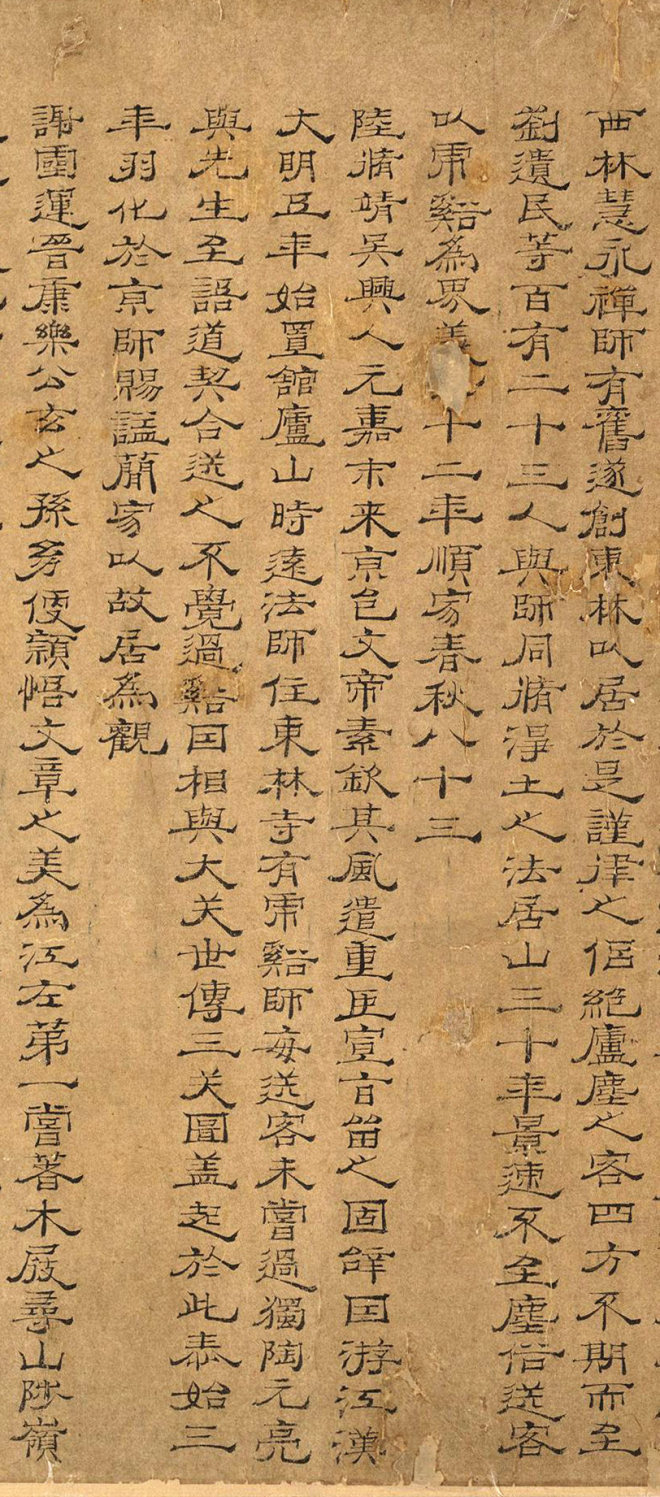 西林慧永禪師有舊遂創東林以居於是謹律之侶絕塵之客四方不期而至
劉遺民等百有二十三人與師同脩淨土之法居山三十年景速不至塵俗送客
以虎谿為界義十二年順寂春秋八十三
陸脩靖吳興人元嘉末来京邑文帝素欽其風遣重臣宣言留之固辝因游江漢
大明五年始置舘廬山時遠法師住東林寺有虎谿師每送客未嘗過獨陶元亮
與先生至語道契合送之不覺過谿因相與大笑世傳三笑圖盖起於此泰始三
年羽化於京師賜謚簡寂以故居為觀
謝靈運晉康樂公玄之孫㓜便頴悟文章之美為江左第一嘗著木屐尋山陟嶺